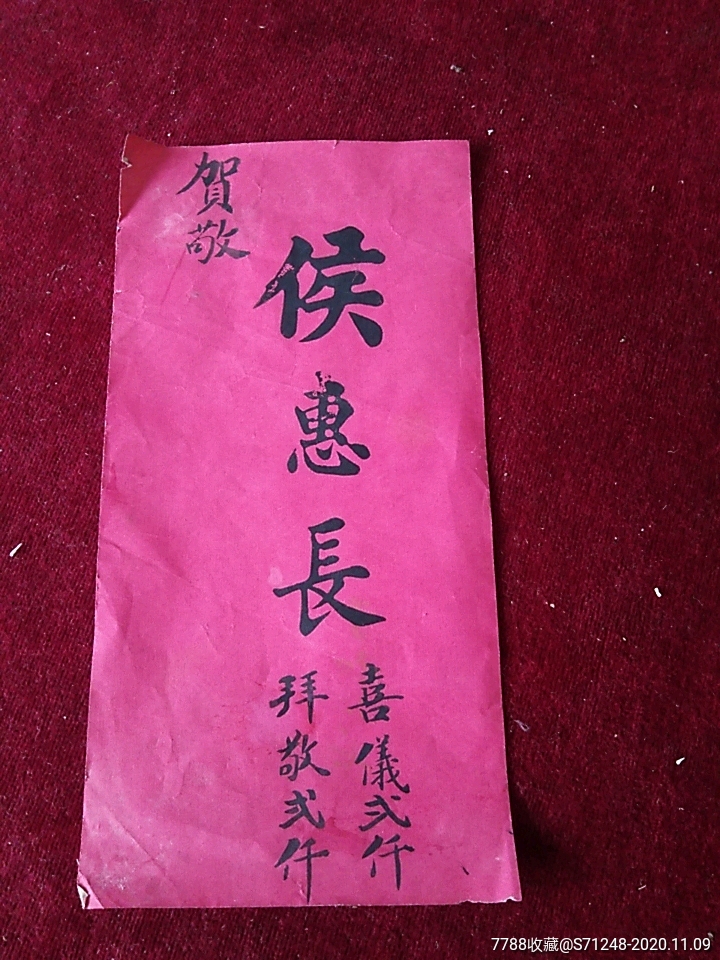 賀敬
侯惠長
喜儀弍仟
拜敬弍仟
7788收藏@S71248-2020.11.09